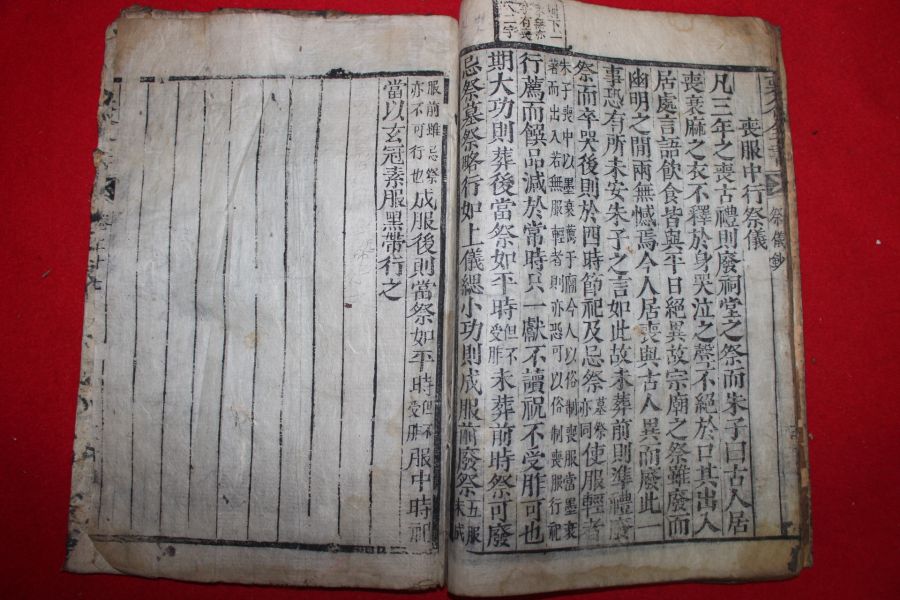 祭儀鈔
喪服中行祭儀
凡三年之喪古禮則廢祠堂之祭而朱子曰古人居
喪衰麻之衣不釋於身哭泣之聲不絕於口其出入
居處言語飮食皆與平日絕異故宗廟之祭雖廢而
幽明之間兩無憾焉今人居喪與古人異而廢此一
事恐有所未安朱子之言如此故未葬前則準禮廢
祭而卒哭後則於四時節祀及忌祭墓祭亦同使服輕者
朱子喪中以墨衰薦于廟今人以俗制喪服當墨衰
著而出入若無服輕者則亦恐可以俗制喪服行祀
行薦而饌品減於常時只一獻不讀祝不受胙可也
期大功則葬後當祭如平時但不受胙未葬前時祭可廢
忌祭墓祭略行如上儀緦小功則成服前廢祭五服未成
服前雖忌祭亦不可行也成服後則當祭如平時但不受胙服中時祀
當以玄冠素服黑帶行之